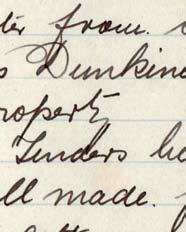 from.
Dunkine
roperty
Tenders he
ll made.